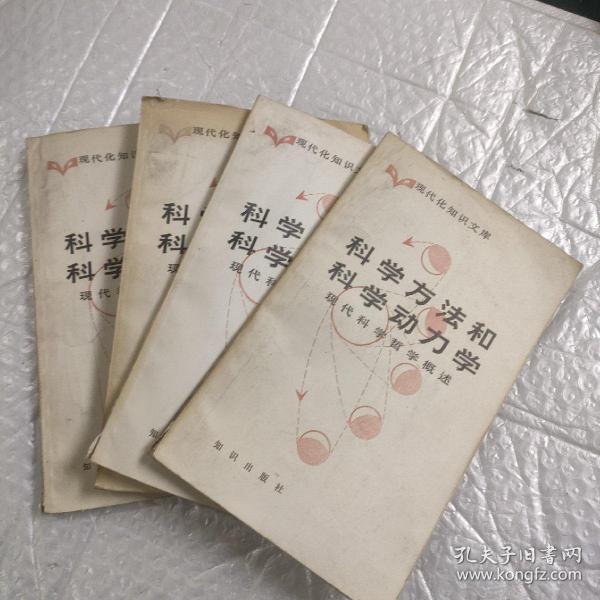 现代化知识
科学
科学
现代
知
现代化知
科学
科学
现
现代化知识文
科学
科学
现代科
知
现代化知识文库
科学方法和
科学动力学
现代科学哲学概述
知识出版社
孔夫子旧书网
www.kongfz.com